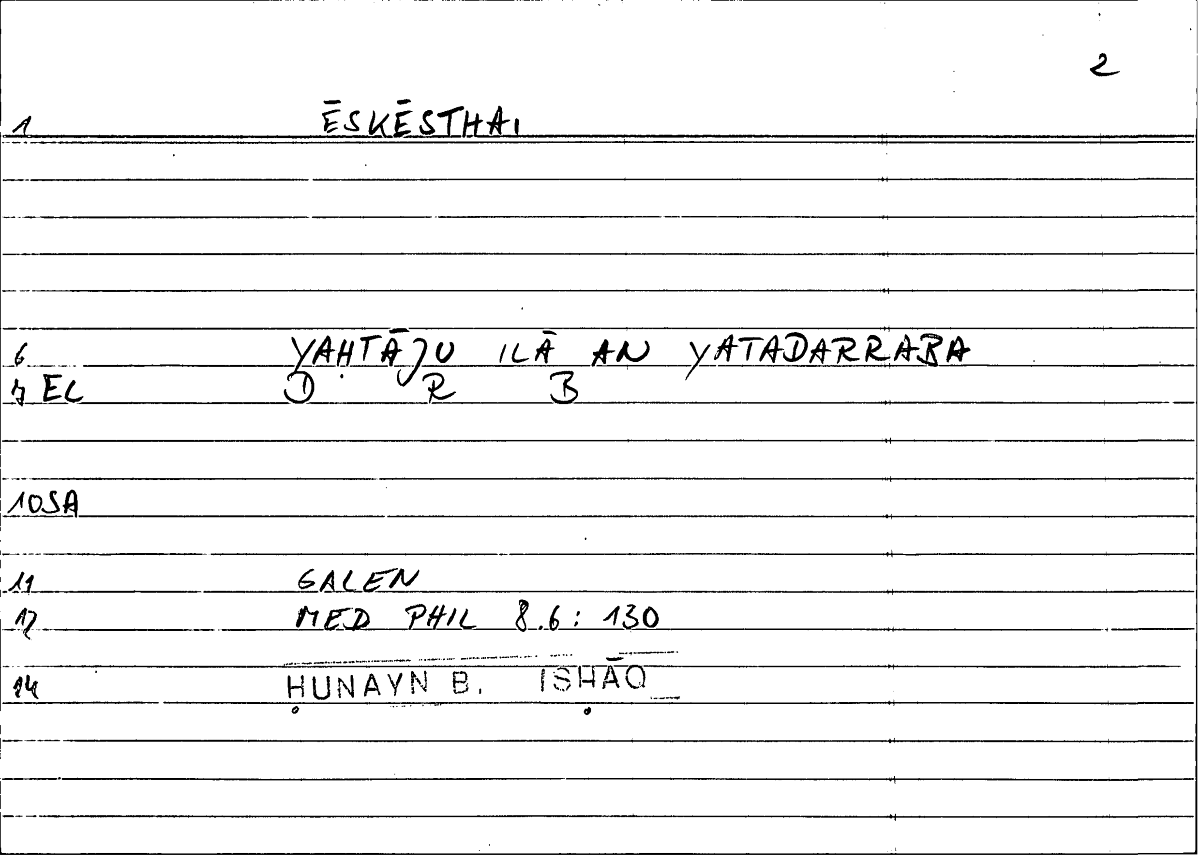 2
1 ĒSKĒSTHAI
6 YAḤTĀJU ILĀ AN YATADARRABA
7 EL D R B
10 SA
11 GALEN
12 MED PHIL 8.6: 130
14 ḤUNAYN B. ISḤĀQ